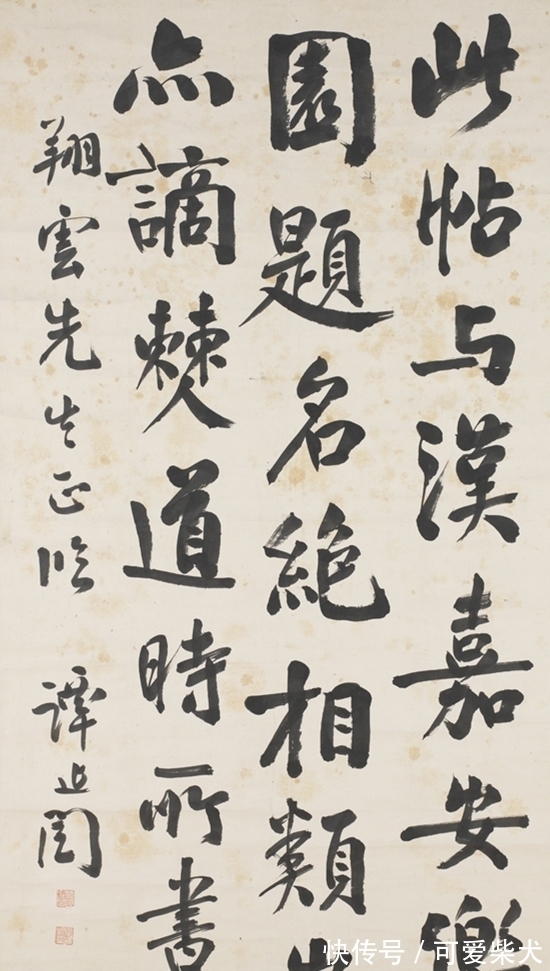 此帖与漢嘉安樂
園題名絕相類
亦謫僰道時所書
翔雲先生正臨 譚延闓
快传号 / 可爱柴犬